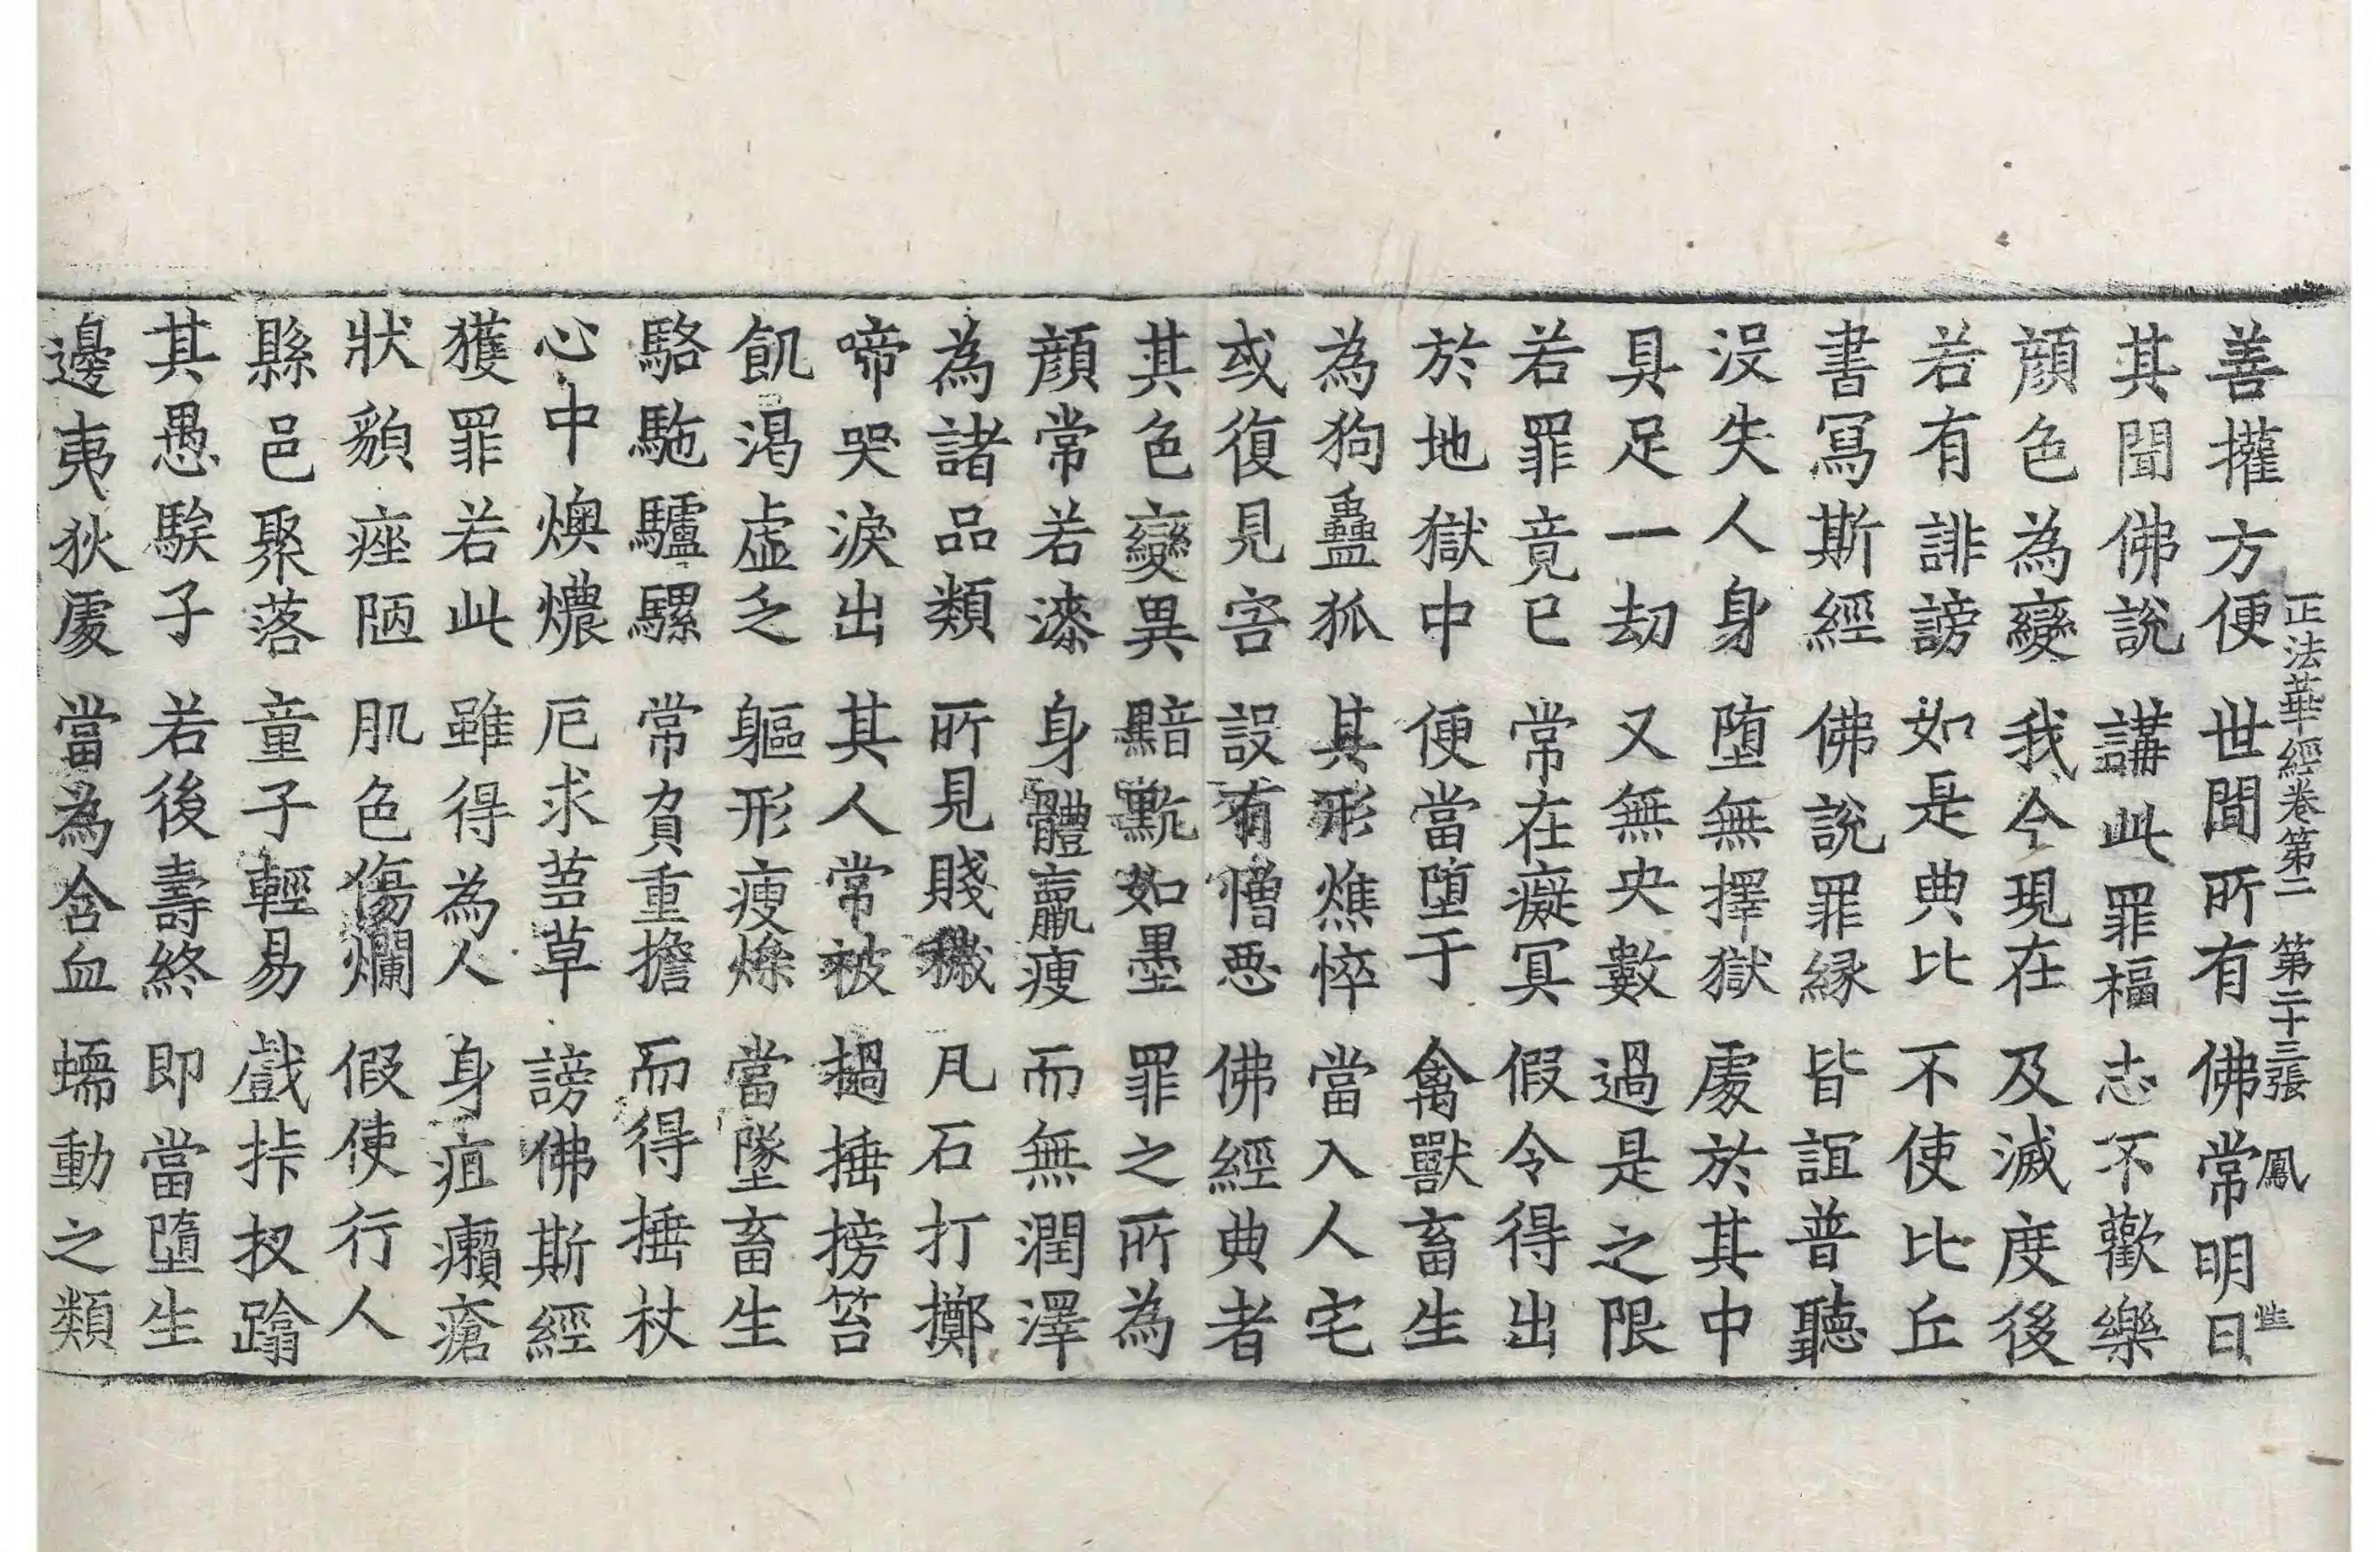 正法華經卷第二 第二十三張 鳳
善權方便 世間所有 佛常明曰
其聞佛說 講此罪福 志不歡樂
顔色為變 我今現在 及滅度後
若有誹謗 如是典比 不使比丘
書寫斯經 佛說罪縁 皆誼普聽
没失人身 堕無擇獄 處於其中
具足一劫 又無央數 過是之限
若罪竟已 常在癡冥 假令得出
於地獄中 便當堕于 禽獸畜生
為狗蠱狐 其形燋悴 當入人宅
或復見害 設有憎惡 佛經典者
其色變異 黯黕如墨 罪之所為
顔常若漆 身體羸瘦 而無潤澤
為諸品類 所見賤穢 凡石打擲
啼哭淚出 其人常被 撾捶搒笞
飢渴虛乏 軀形瘦燥 當墜畜生
駱駞驢騾 常負重擔 而得捶杖
心中燠燶 厄求蒭草 謗佛斯經
獲罪若此 雖得為人 身疽癩瘡
狀貌痤陋 肌色傷爛 假使行人
縣邑聚落 童子輕易 戲挊扠蹹
其愚騃子 若後壽終 即當墮生
邊夷狄處 當為含血 蠕動之類